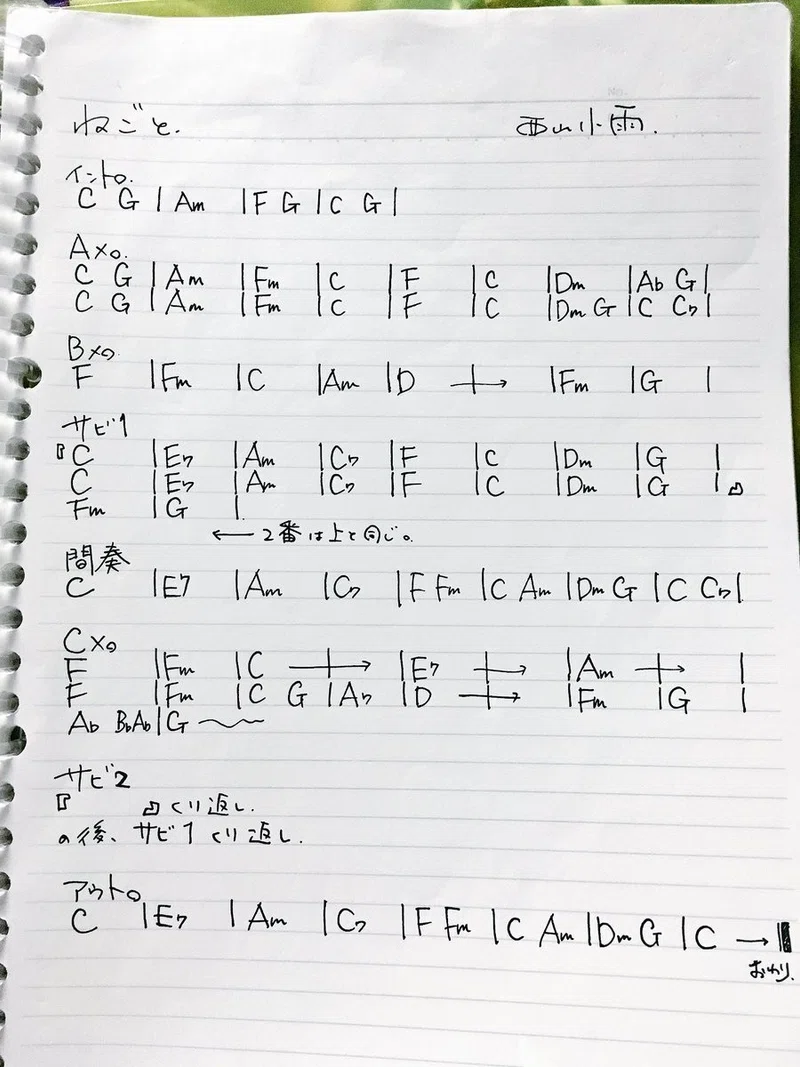 ねごと. 西山小雨.
イントロ.
C G | Am | F G | C G |
Aメロ.
C G | Am | Fm | C | F | C | Dm | A♭ G |
C G | Am | Fm | C | F | C | Dm G | C C7 |
Bメロ
F | Fm | C | Am | D ―|→ | Fm | G |
サビ1
『C | E7 | Am | C7 | F | C | Dm | G |
C | E7 | Am | C7 | F | C | Dm | G |』
Fm | G |
← 2番は上と同じ。
間奏
C | E7 | Am | C7 | F Fm | C Am | Dm G | C C7 |
Cメロ
F | Fm | C ―|→ | E7 ―|→ | Am ―|→ |
F | Fm | C G | A7 | D ―|→ | Fm | G |
A♭ B♭A♭ | G 〜〜
サビ2
『 』くり返し.
の後、サビ1くり返し.
アウトロ
C | E7 | Am | C7 | F Fm | C Am | Dm G | C →
おわり.